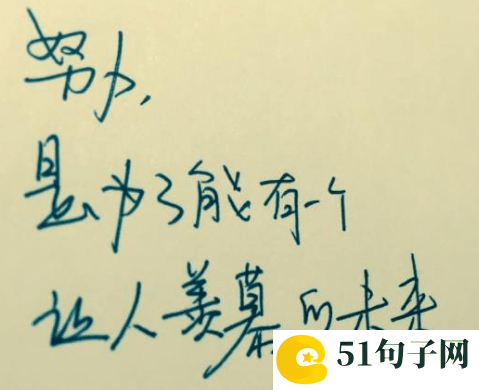 努力,
是为了能有一个
让人羡慕的未来
51句子网